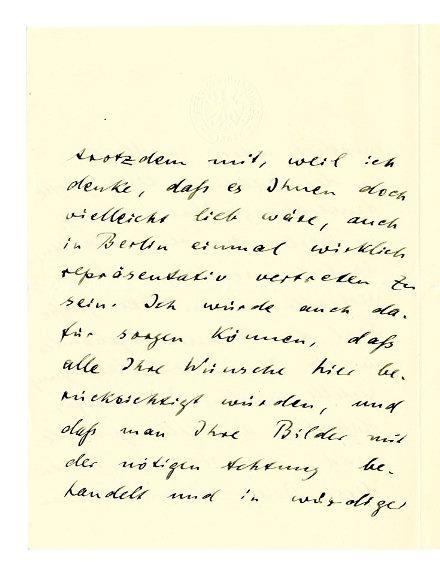 trotzdem mit, weil ich
denke, daß es Ihnen doch
vielleicht lieb wäre, auch
in Berlin einmal wirklich
repräsentativ vertreten zu
sein. Ich würde auch da-
für sorgen können, daß
alle Ihre Wünsche hier be-
rücksichtigt würden, und
daß man Ihre Bilder mit
der nötigen Achtung be-
handelt und in würdiger